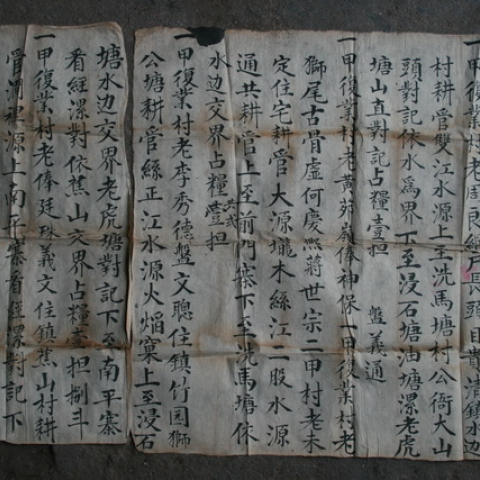 一甲復業村老周良經戶長頭目貴清鎮水边
村耕管雙江水源上至洗馬塘村公衙大山
頭對記依水為界下至浸石塘油塘漯老虎
塘山直對記占糧壹担 盤義通
一甲復業村老黃苑嶺俸神保一甲復業村老
獅尾古骨虛何慶熙蔣世宗二甲村老未
定住宅耕管大源壠木絲江二股水源
通共耕管上至前门寨下至洗馬塘依
水边交界占糧共弍壹担
一甲復業村老李秀德盤文聰住鎮竹园獅
公塘耕管絲正江水源火焰窠上至浸石
塘水边交界老虎塘對記下至南平寨
看經漯對依蕉山交界占糧壹担捌斗
一甲復業村老俸廷珠義文住鎮蕉山村耕
管澗裡源上南平寨看經漯對記下